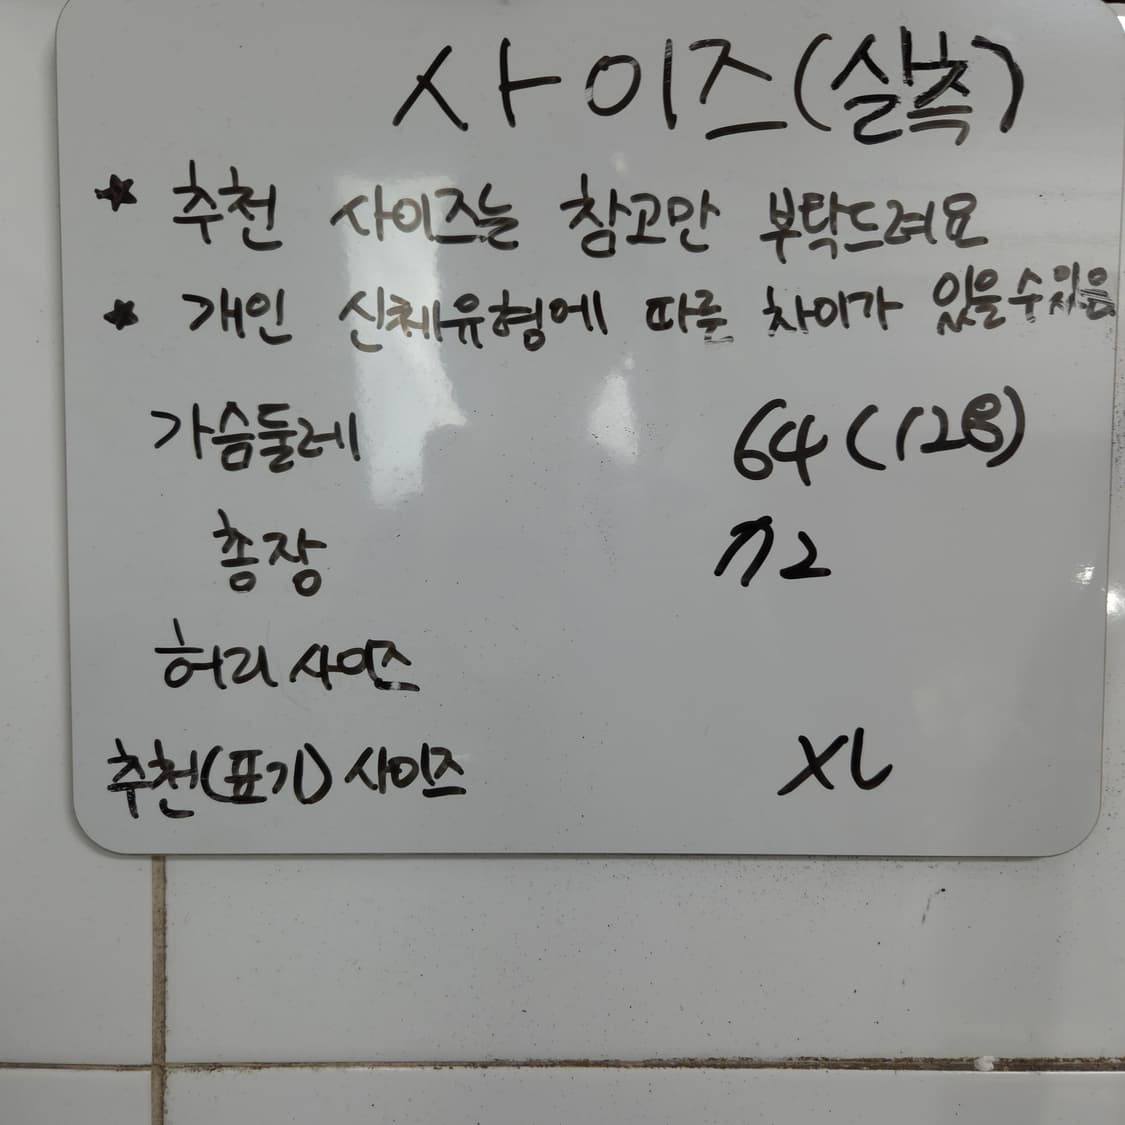 사이즈(실측)
★ 추천 사이즈는 참고만 부탁드려요
★ 개인 신체유형에 따른 차이가 있을수있음
가슴둘레 64(128)
총장 72
허리 사이즈
추천(표기) 사이즈 XL